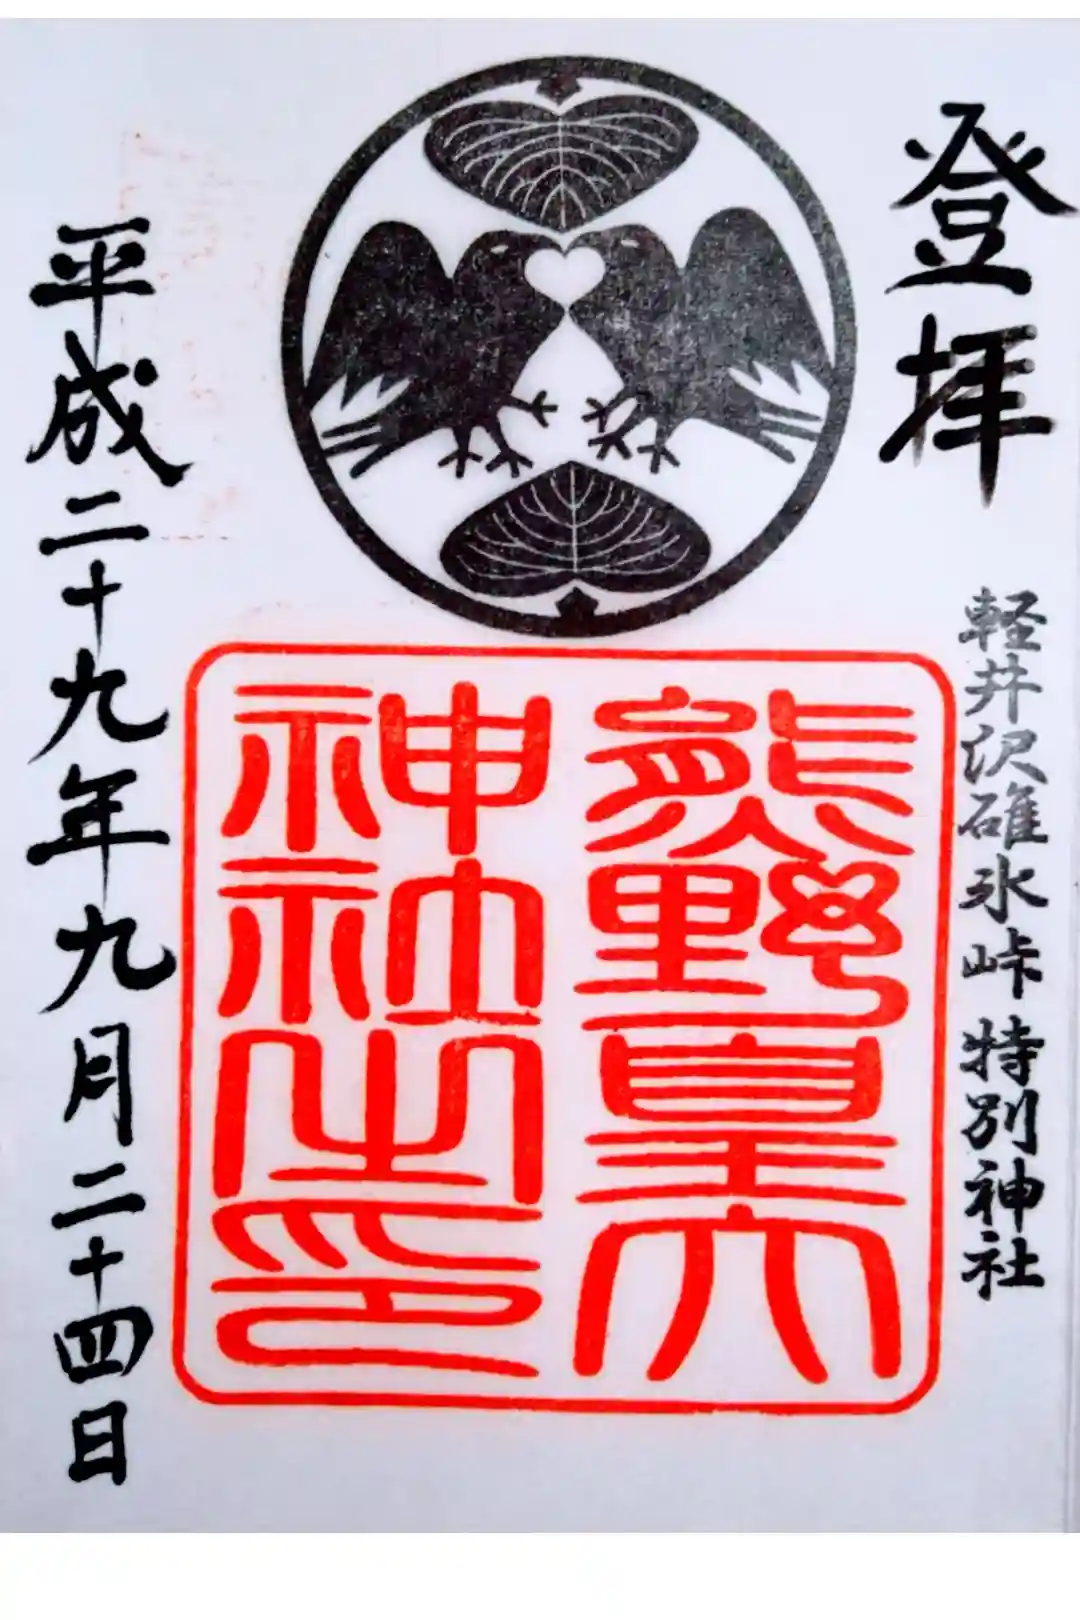 登拝
軽井沢碓氷峠 特別神社
熊野皇大
神社之印
平成二十九年九月二十四日